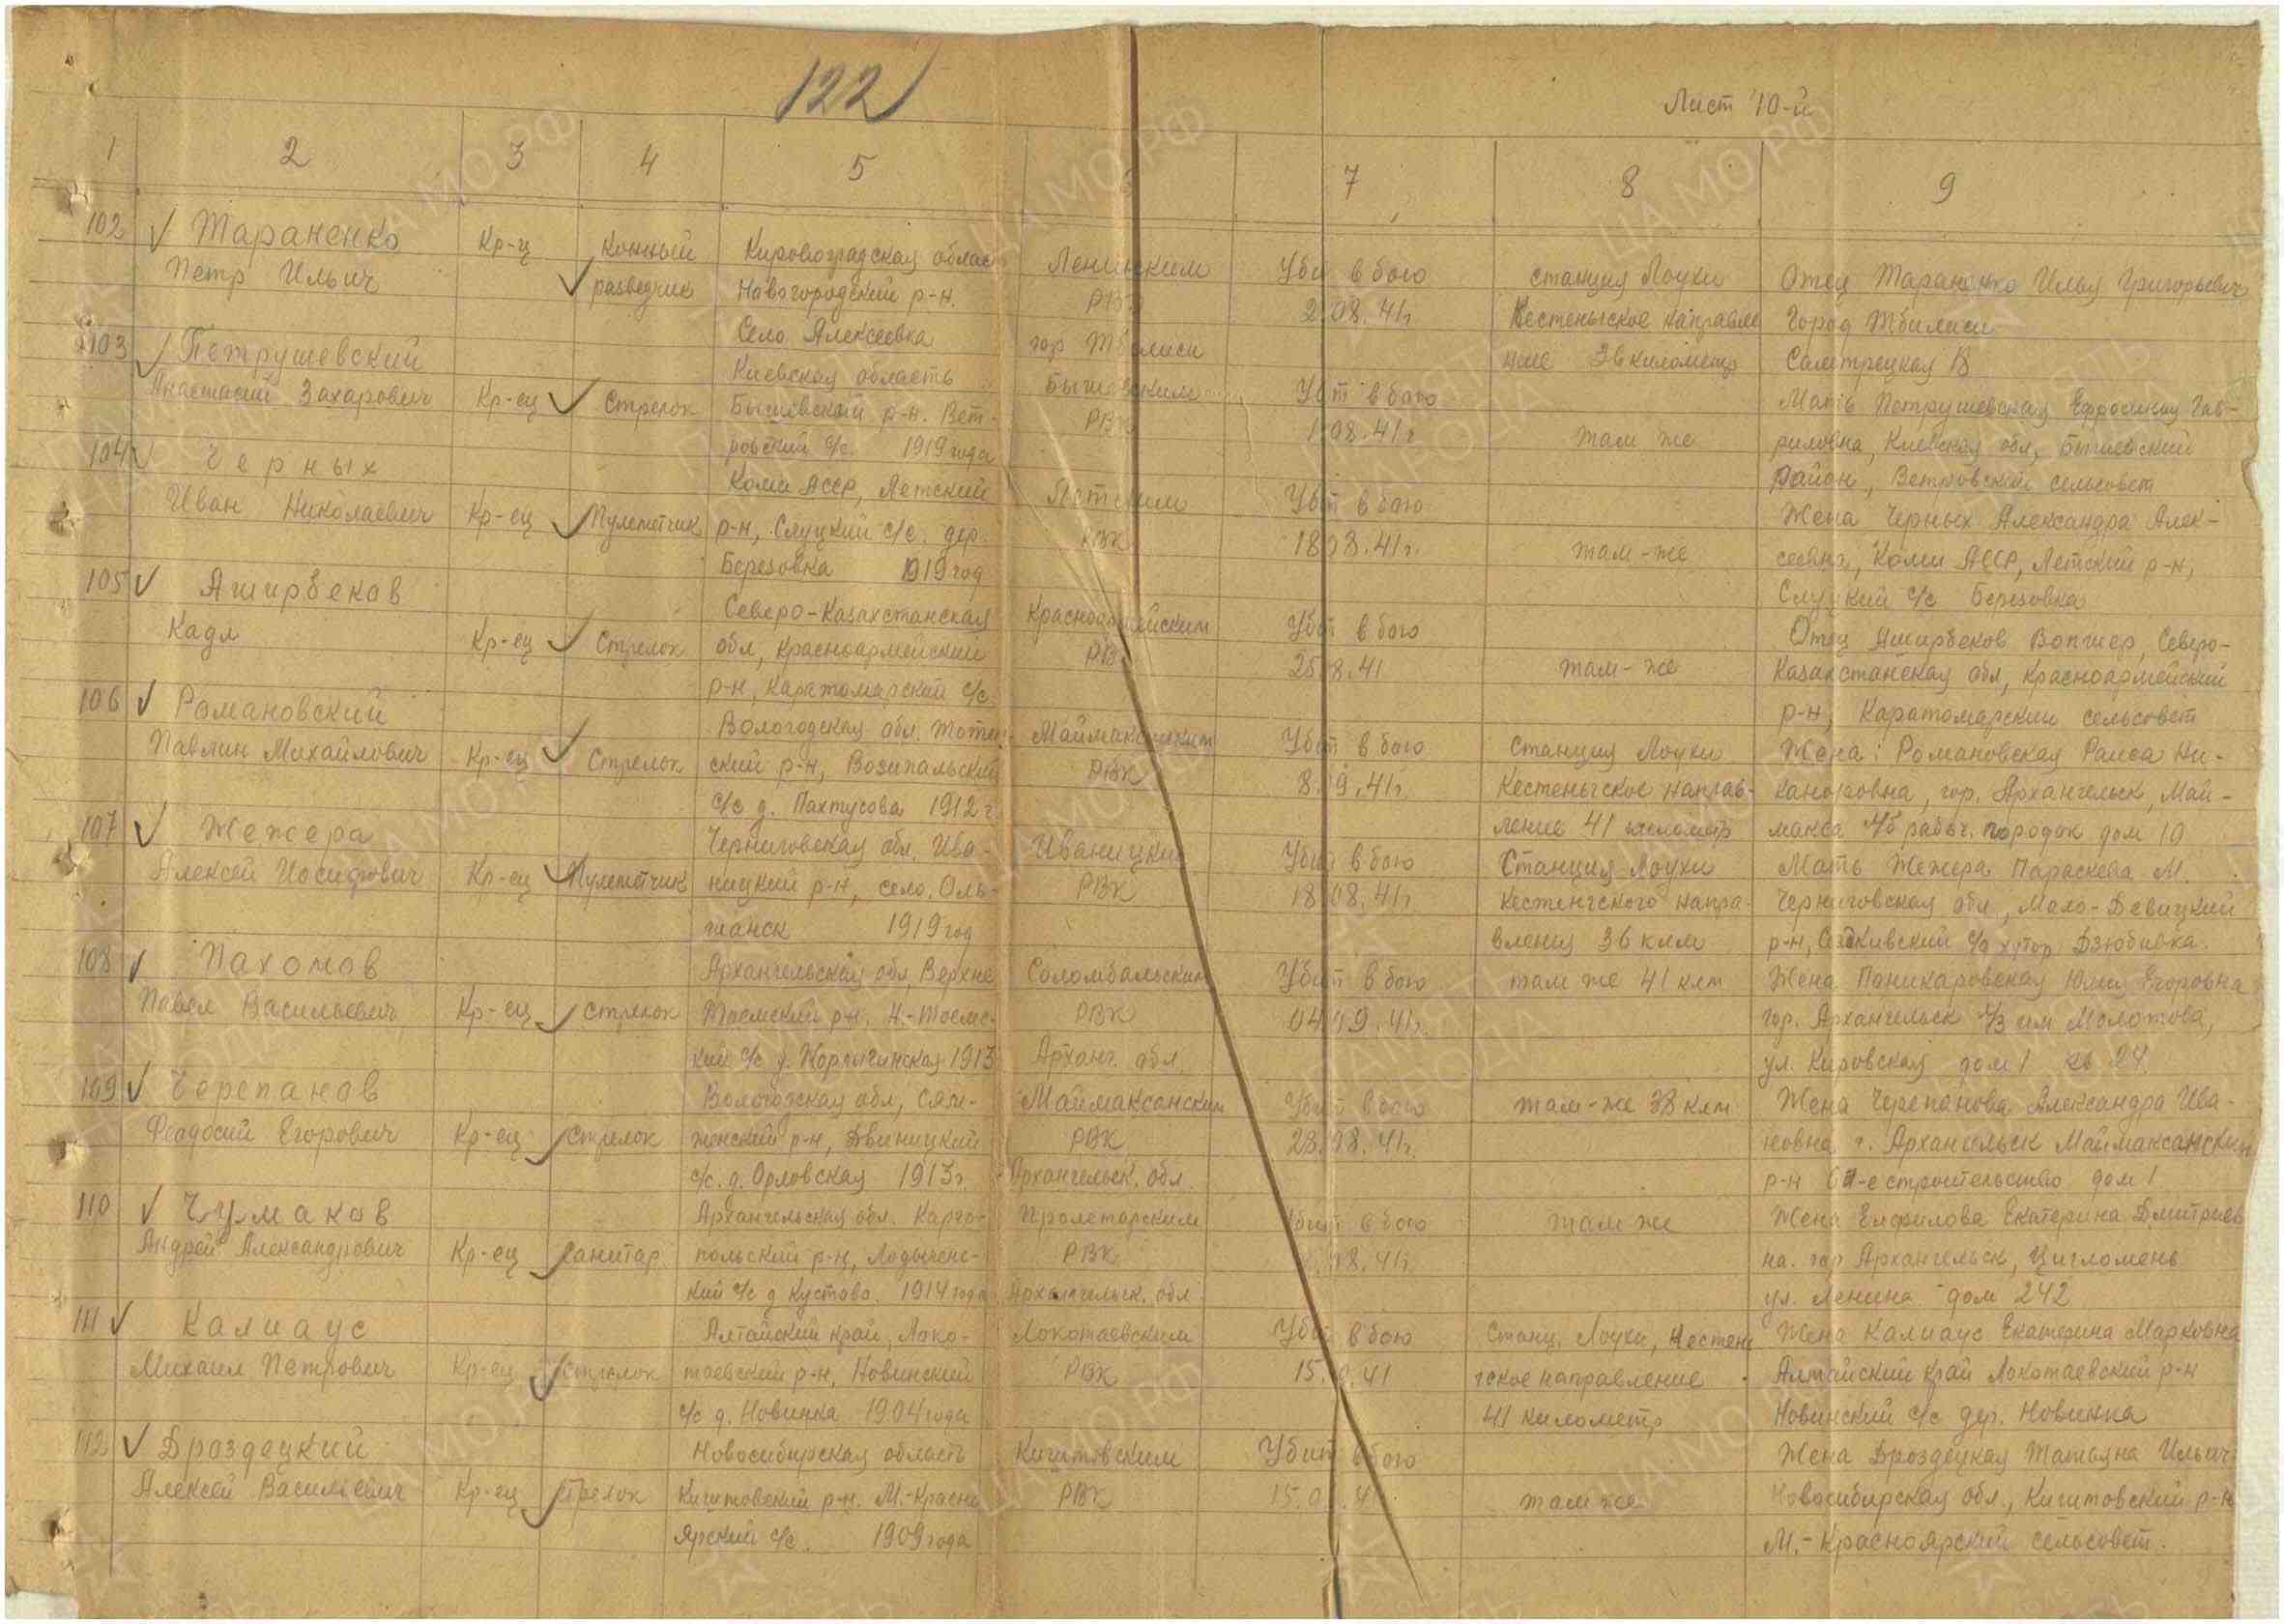 122
Лист 10-й
1 2 3 4 5 6 7 8 9
102 Тараненко
Петр Ильич
Кр-ц
Конный
разведчик
Кировоградская област
Новогородский р-н.
Село Алексеевка
Ленинским
РВК
гор Тбилиси
Убит в бою
2 08.41г
станция Лоухи
Кестеньгское направле
ние 36 километр
Отец Тараненко Илья Григорьевич
Город Тбилиси
Самтрецкая 18
103 Петрушевский
Анастасий Захарович
Кр-ец
Стрелок
Киевская область
Бышевский р-н. Вет-
ровский с/с. 1919 года
Бышевским
РВК
Убит в бою
1 08.41г
там же
Мать Петрушевская Ефросинья Гав-
риловна, Киевская обл, Бышевский
район, Ветровский сельсовет
104 Черных
Иван Николаевич
Кр-ец
Пулеметчик
Коми АССР, Летский
р-н, Слуцкий с/с. дер.
Березовка 1919 год
Летским
РВК
Убит в бою
18 08.41г.
там-же
Жена Черных Александра Алек-
сеевна, Коми АССР, Летский р-н,
Слуцкий с/с Березовка
105 Аширбеков
Кадл
Кр-ец
Стрелок
Северо-Казахстанская
обл, Красноармейский
р-н, Каратомарский с/с.
Красноармейским
РВК
Убит в бою
25 8.41
там-же
Отец Аширбеков Вопшер, Северо-
Казахстанская обл, Красноармейский
р-н, Каратомарский сельсовет
106 Романовский
Павлин Михайлович
Кр-ец
Стрелок
Вологодская обл. Тотем-
ский р-н, Возипальский
с/с д. Пахтусова 1912 г.
Маймаксанским
РВК
Убит в бою
8. 9.41г.
Станция Лоухи
Кестеньгское направ-
ление 41 километр
Жена: Романовская Раиса Ни-
каноровна, гор. Архангельск, Май-
макса 45 рабоч. городок дом 10
107 Жежера
Алексей Иосифович
Кр-ец
Пулеметчик
Черниговская обл, Ива-
ницкий р-н, село, Оль-
шанск 1919 год
Иваницким
РВК
Убит в бою
18 08.41г
Станция Лоухи
Кестенгского напра-
вления 36 клм
Мать Жежера Параскева М.
Черниговская обл, Мало-Девицкий
р-н, с/с хутор Дзюбивка.
108 Пахомов
Павел Васильевич
Кр-ец
стрелок
Архангельская обл, Верхне
Тоемский р-н, Н.-Тоемс-
кий с/с д. Корпычинская 1913
Соломбальским
РВК
Арханг. обл.
Убит в бою
04 9.41г.
там же 41 клм
Жена Паникаровская Юлия Егоровна
гор. Архангельск л/з им Молотова,
ул. Кировская дом 1 кв 24
109 Черепанов
Феодосий Егорович
Кр-ец
стрелок
Вологодская обл, Сям-
женский р-н, Двиницкий
с/с. д. Орловская 1913 г.
Маймаксанским
РВК
Архангельск. обл
Убит в бою
28. 08.41г.
там-же 38 клм
Жена Черепанова Александра Ива-
новна г. Архангельск Маймаксанский
р-н 6 -е строительство дом 1
110 Чумаков
Андрей Александрович
Кр-ец
санитар
Архангельская обл. Карго-
польский р-н, Лодыгенс-
кий с/с д Кустово. 1914 года
Пролетарским
РВК
Архангельск. обл
Убит в бою
08.41г
там же
Жена Елфилова Екатерина Дмитриев
на. гор Архангельск, Цигломень
ул. Ленина дом 242
111 Калиаус
Михаил Петрович
Кр-ец
стрелок
Алтайский край, Локо-
таевский р-н, Новинский
с/с д. Новинка 1904 года
Локотаевским
РВК
Убит в бою
15. 9.41
Станц. Лоухи, Кестень
гское направление
41 километр
Жена Калиаус Екатерина Марковна
Алтайский край Локотаевский р-н
Новинский с/с дер. Новинка
112 Дроздецкий
Алексей Васильевич
Кр-ец
стрелок
Новосибирская область
Киштовский р-н. М.-Красно
Ярский с/с. 1909 года
Киштовским
РВК
Убит в бою
15.0 .4
там же
Жена Дроздецкая Татьяна Ильич
Новосибирская обл., Киштовский р-н
М.-Красноярский сельсовет.